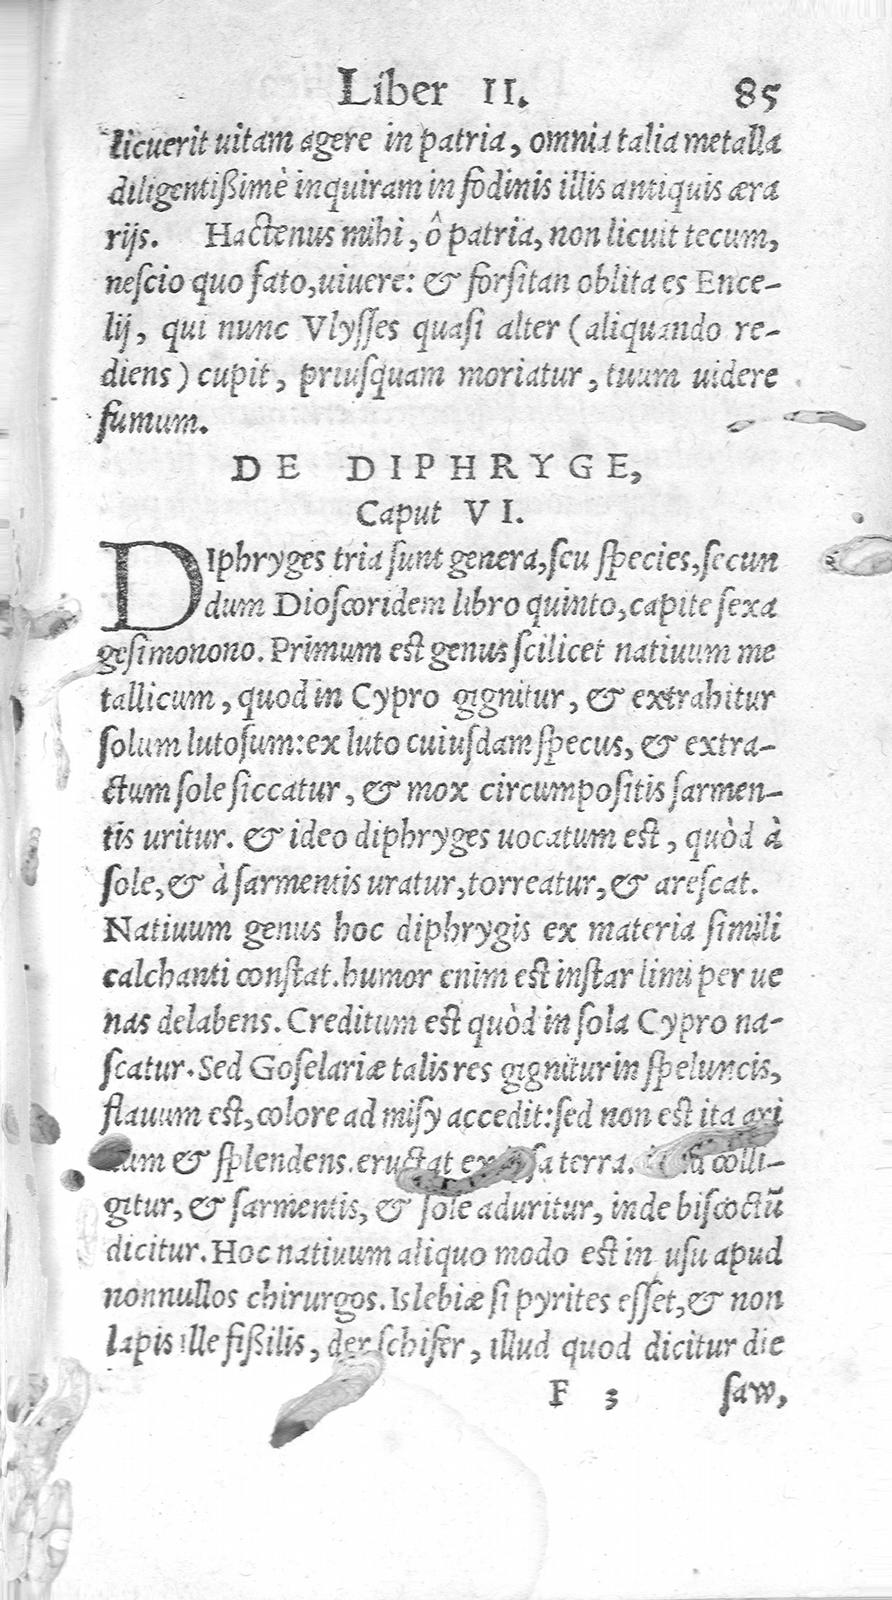 Liber II. 85
licuerit uitam agere in patria, omnia talia metalla
diligentißimè inquiram in fodinis illis antiquis æra
rijs. Hactenus mihi, ô patria, non licuit tecum,
neſcio quo fato, uiuere: & forſitan oblita es Ence-
lij, qui nunc Vlyſſes quaſi alter (aliquando re-
diens) cupit, priuſquam moriatur, tuum uidere
fumum.
DE DIPHRYGE,
Caput VI.
DIphryges tria ſunt genera, ſeu ſpecies, ſecun
dum Dioſcoridem libro quinto, capite ſexa
geſimonono. Primum eſt genus ſcilicet natiuum me
tallicum, quod in Cypro gignitur, & extrahitur
ſolum lutoſum: ex luto cuiuſdam ſpecus, & extra-
ctum ſole ſiccatur, & mox circumpoſitis ſarmen-
tis uritur. & ideo diphryges uocatum eſt, quòd à
ſole, & à ſarmentis uratur, torreatur, & areſcat.
Natiuum genus hoc diphrygis ex materia ſimili
calchanti conſtat. humor enim eſt inſtar limi per ue
nas delabens. Creditum eſt quòd in ſola Cypro na-
ſcatur. Sed Goſelariæ talis res gignitur in ſpeluncis,
flauum eſt, colore ad miſy accedit: ſed non eſt ita ari
& ſplendens. eructat ex terra. colli-
gitur, & ſarmentis, & ſole aduritur, inde biſcoctũ
dicitur. Hoc natiuum aliquo modo eſt in uſu apud
nonnullos chirurgos. Islebiæ ſi pyrites eſſet, & non
lapis ille fißilis, der ſchifer, illud quod dicitur die
F 3 ſaw,